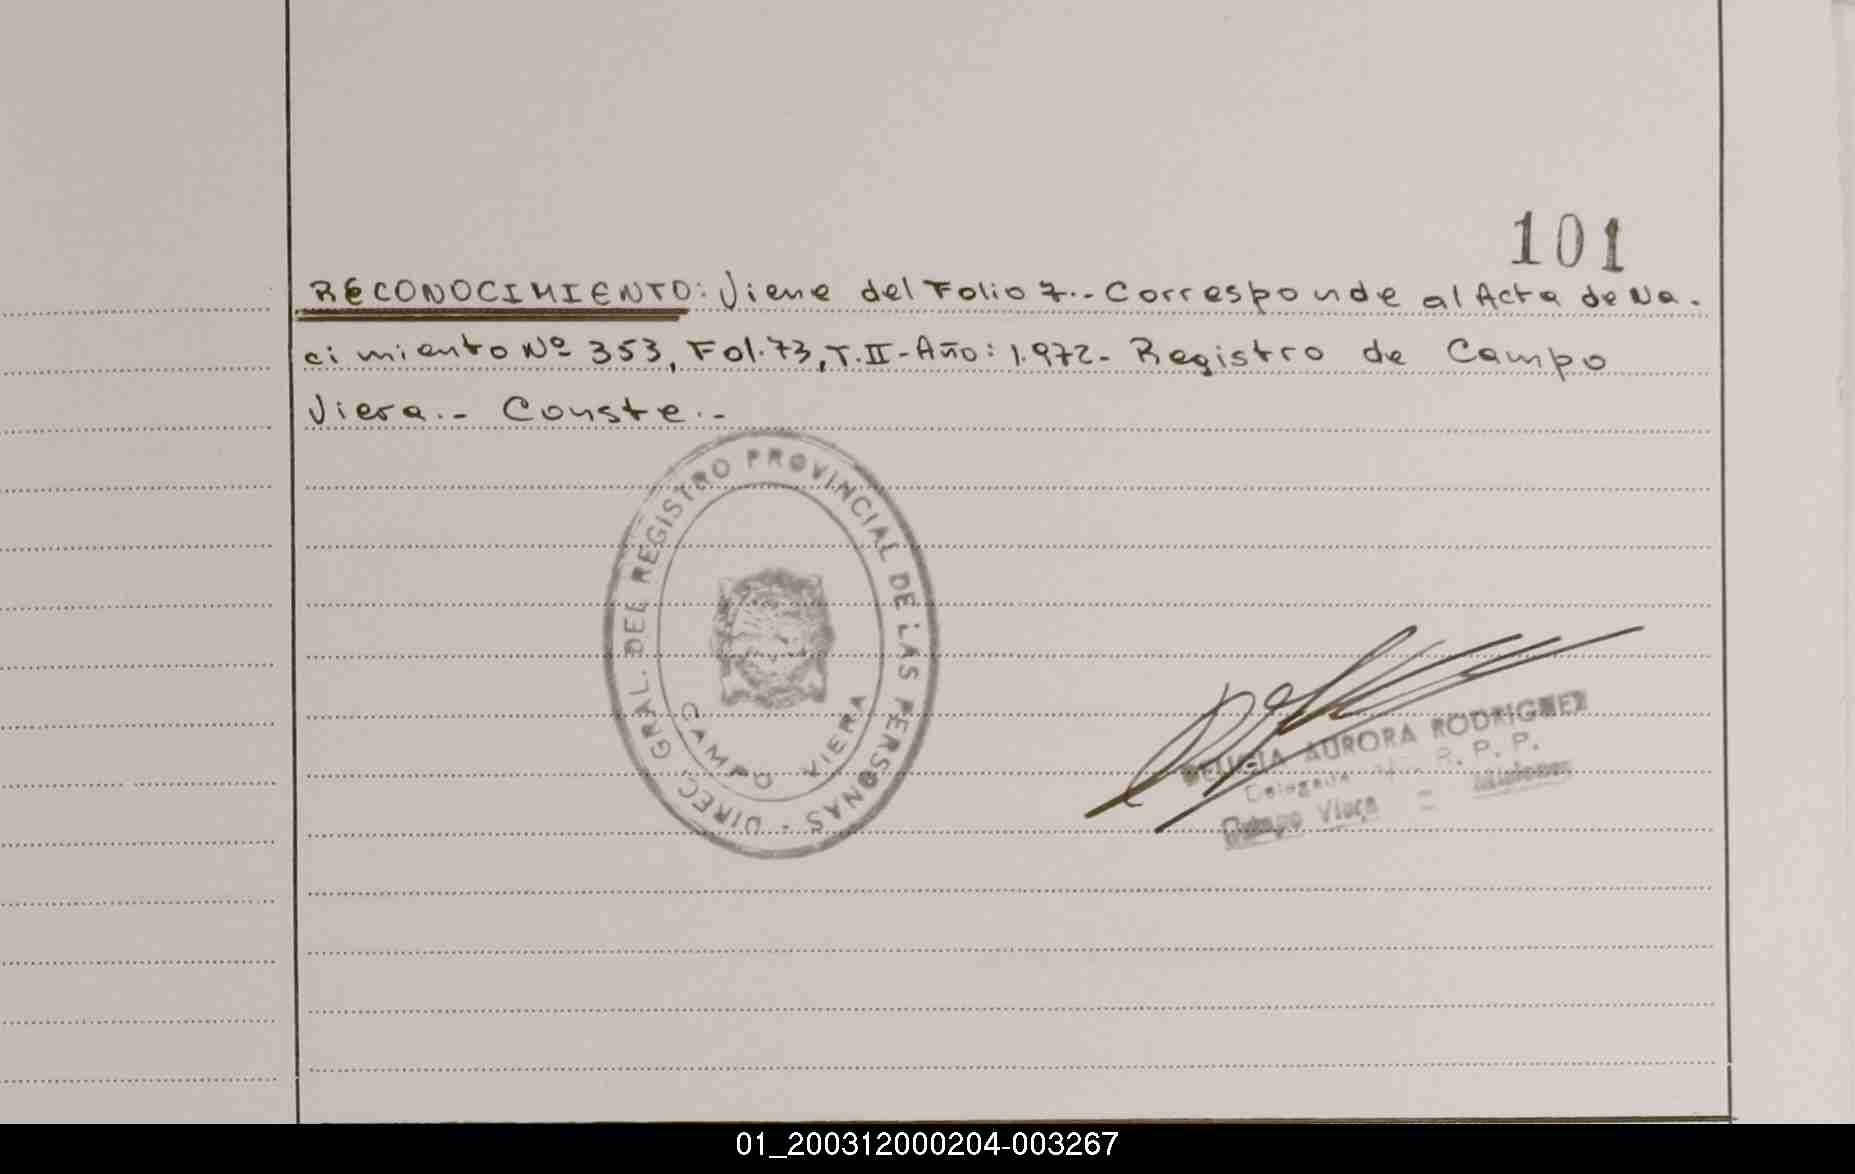 101
RECONOCIMIENTO: Viene del Folio 7.-Corresponde al Acta de Na.
cimiento Nº 353, Fol.73, T.II-Año: 1.972- Registro de Campo
Viera.- Conste.-
DIREC. GRAL. DEL REGISTRO PROVINCIAL DE LAS PERSONAS -
CAMPO VIERA
AURORA RODRIGUEZ
Delegada R. P. P.
Campo Viera = Misiones
01_200312000204-003267